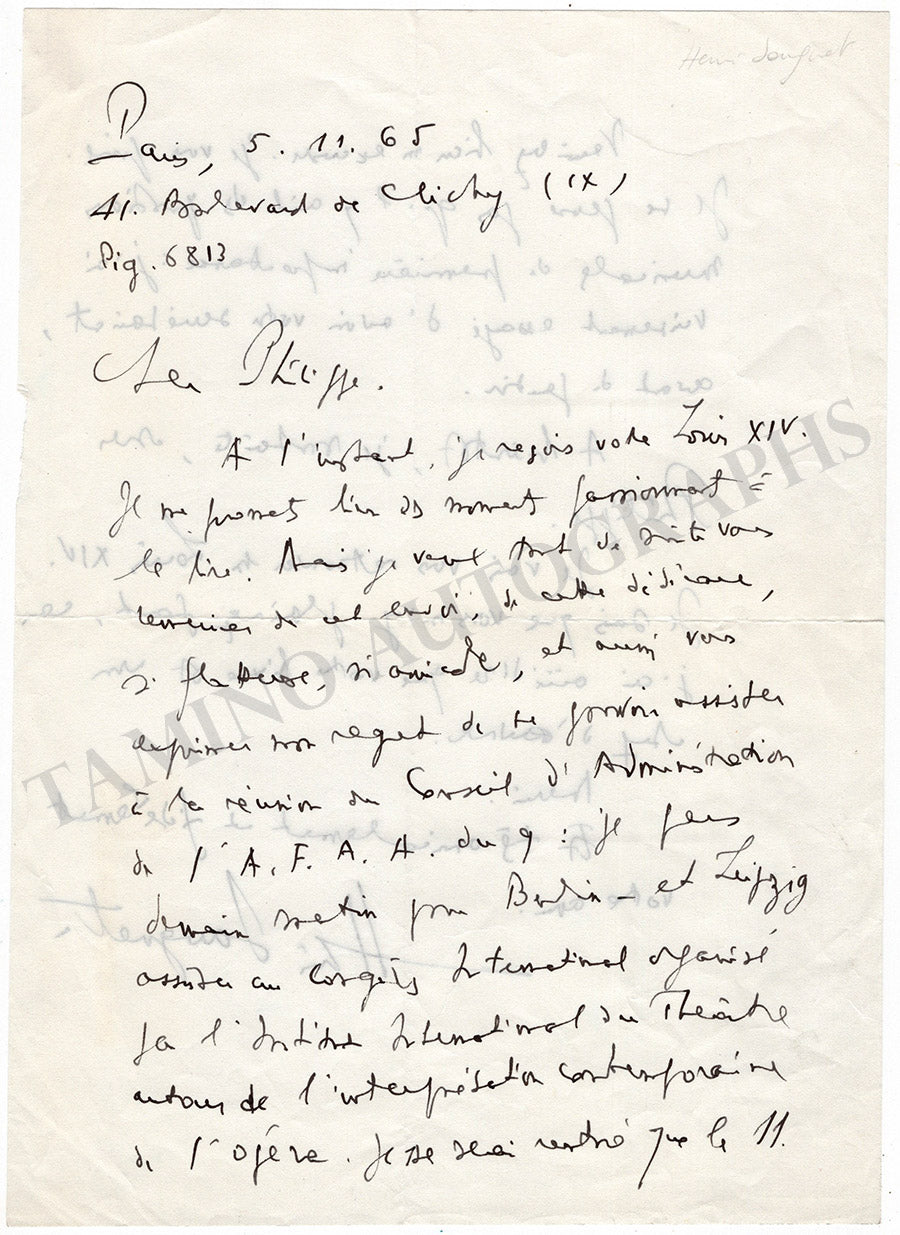 Henri Sauguet
Paris, 5.11.65
41. Boulevard de Clichy (IX)
Pig. 6813
Cher Philippe.
A l'instant, je reçois votre Louis XIV.
Je me promets l'un des moments passionnants =
le lire. Mais je veux tout de suite vous
remercier de cet envoi, de cette dédicace,
si flatteuse, si amicale, et aussi vous
exprimer mon regret de ne pouvoir assister
à la réunion du Conseil d'Administration
de l'A.F.A.A. du 9 : je pars
demain matin pour Berlin - et Leipzig
assister au Congrès International organisé
par l'Institut International du Théâtre
autour de l'interprétation contemporaine
de l'opéra. Je ne serai rentré que le 11.
TAMINO AUTOGRAPHS